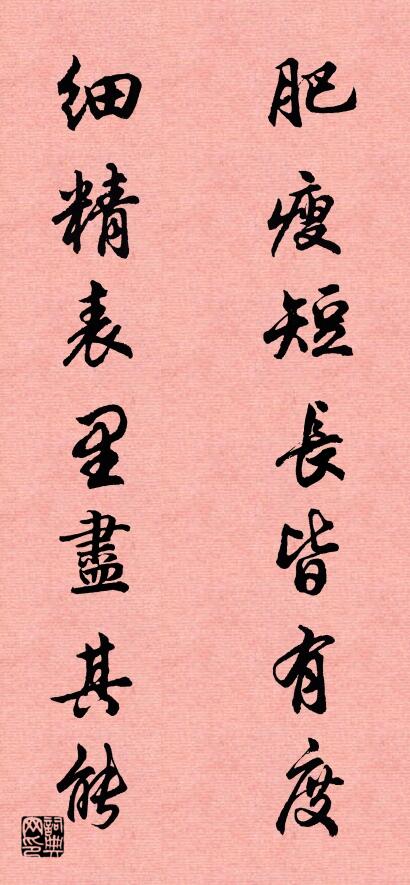 肥瘦短長皆有度
细精表里盡其能
詞典网印